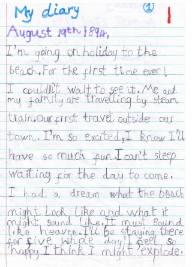 My diary
①
1
August 19th, 1894,
I'm going on holiday to the
beach. For the first time ever!
I couldn't wait to see it. Me and
my family are travelling by steam
train. our first travel outside our
town. I'm so excited, I know I'll
have so much fun. I can't sleep
waiting for the day to come.
I had a dream what the beach
might look like and what it
might sound like. It must sound
like heaven. I'll be staying there
for five whole day I feel so
happy I think I might explode.